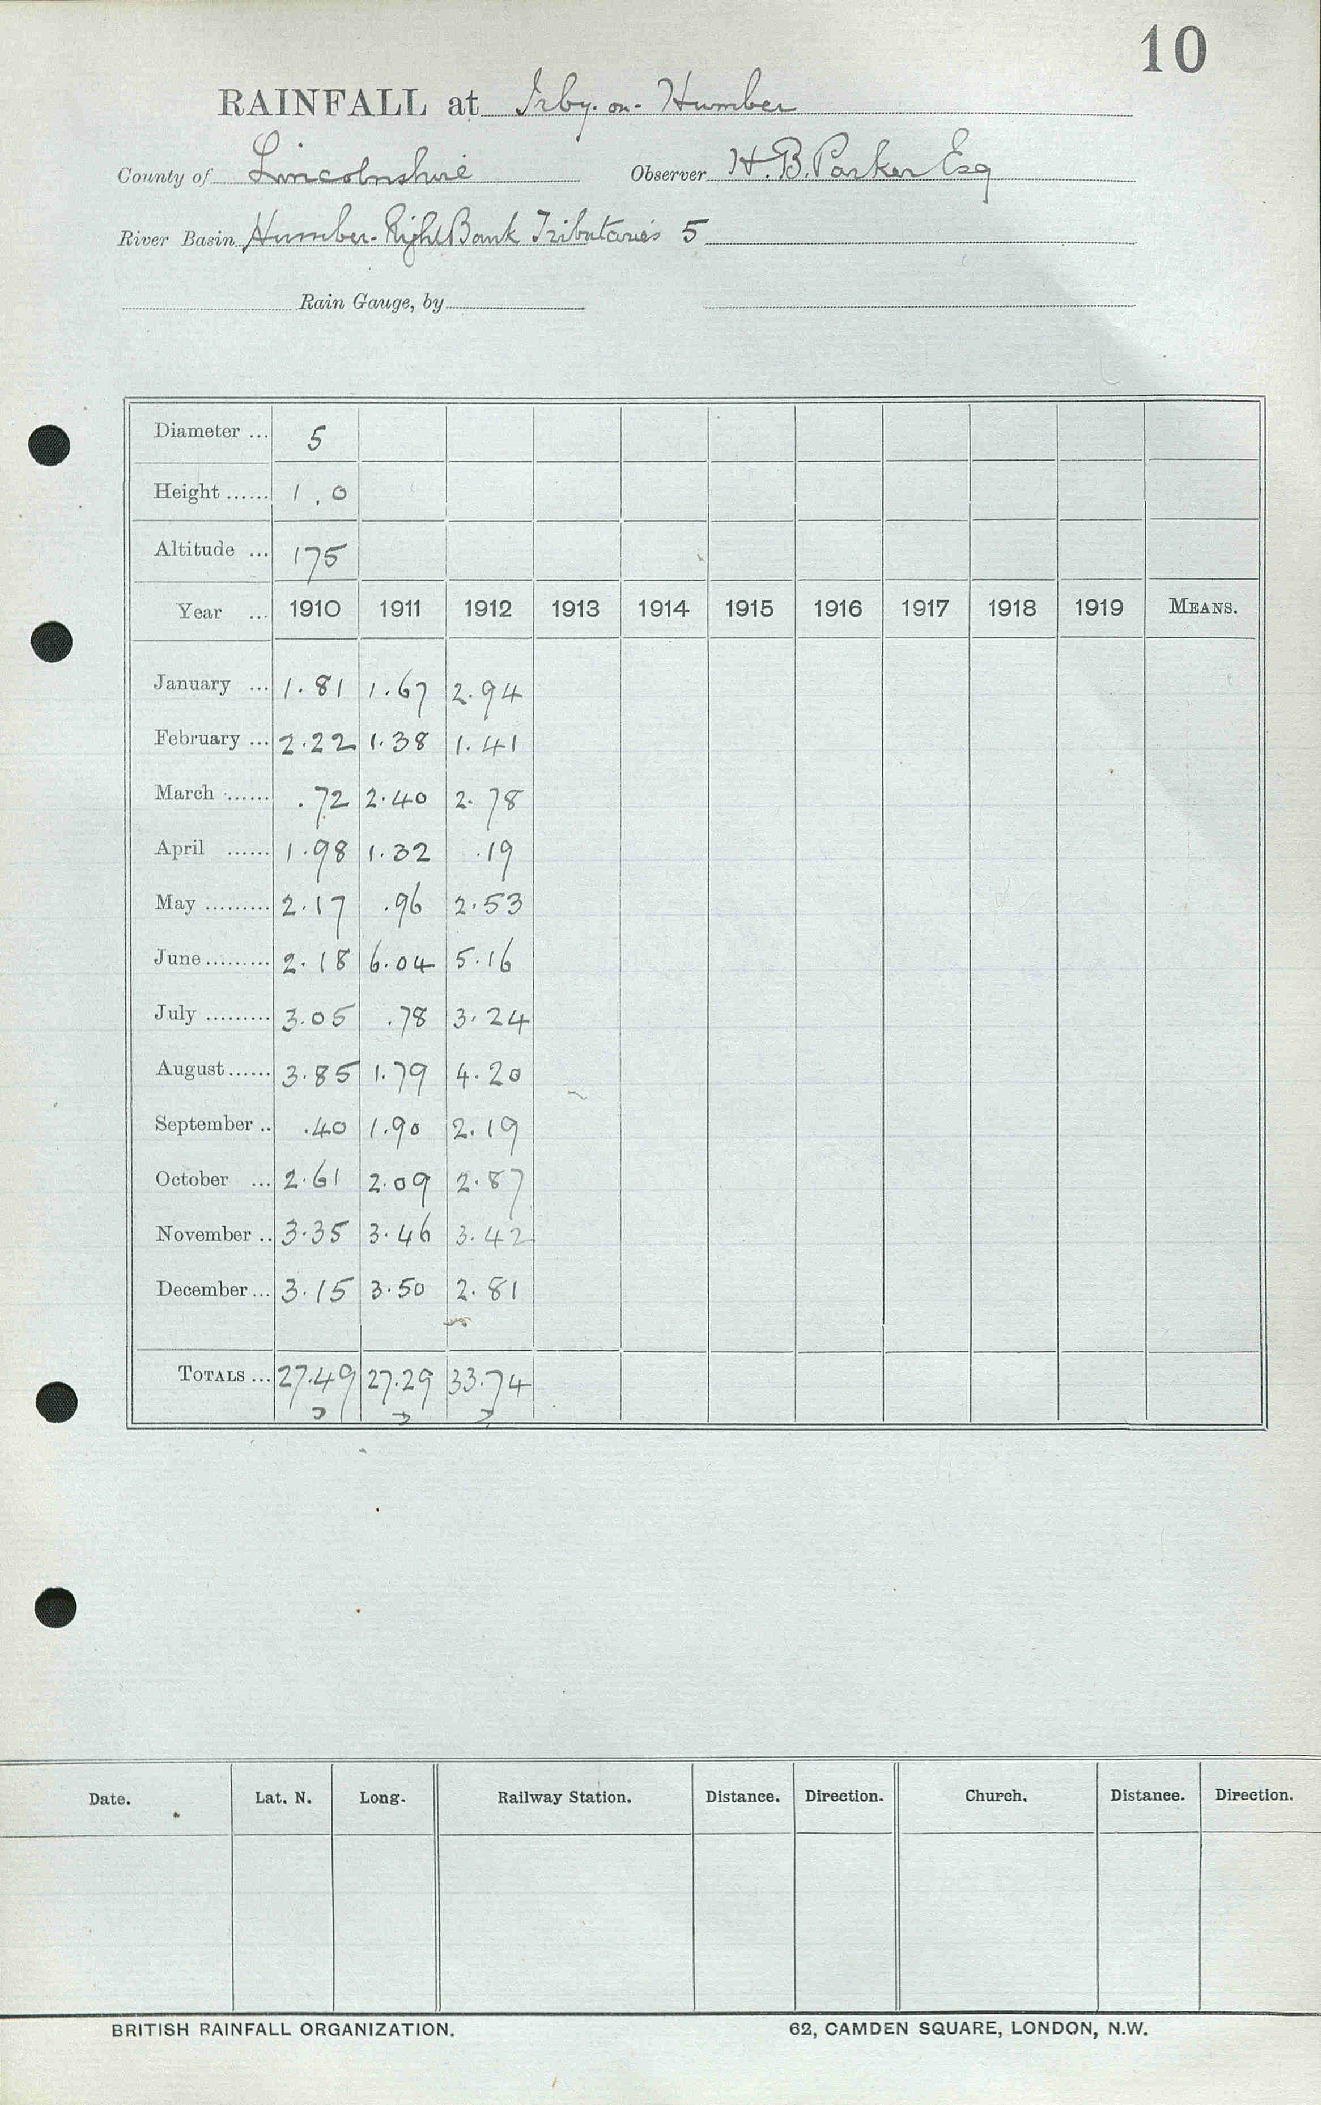 10
RAINFALL at Irby-on-Humber
County of Lincolnshire Observer H. B. Parker Esq
River Basin Humber-Right Bank Tributaries 5
Rain Gauge, by
Diameter ... 5
Height ...... 1.0
Altitude ... 175
Year ... 1910 1911 1912 1913 1914 1915 1916 1917 1918 1919 MEANS.
January ... 1.81 1.67 2.94
February ... 2.22 1.38 1.41
March ...... .72 2.40 2.78
April ...... 1.98 1.32 .19
May ......... 2.17 .96 2.53
June ......... 2.18 6.04 5.16
July ......... 3.05 .78 3.24
August ...... 3.85 1.79 4.20
September .. .40 1.90 2.19
October ... 2.61 2.09 2.87
November .. 3.35 3.46 3.42
December ... 3.15 3.50 2.81
TOTALS ... 27.49 27.29 33.74
Date. Lat. N. Long. Railway Station. Distance. Direction. Church. Distance. Direction.
BRITISH RAINFALL ORGANIZATION. 62, CAMDEN SQUARE, LONDON, N.W.